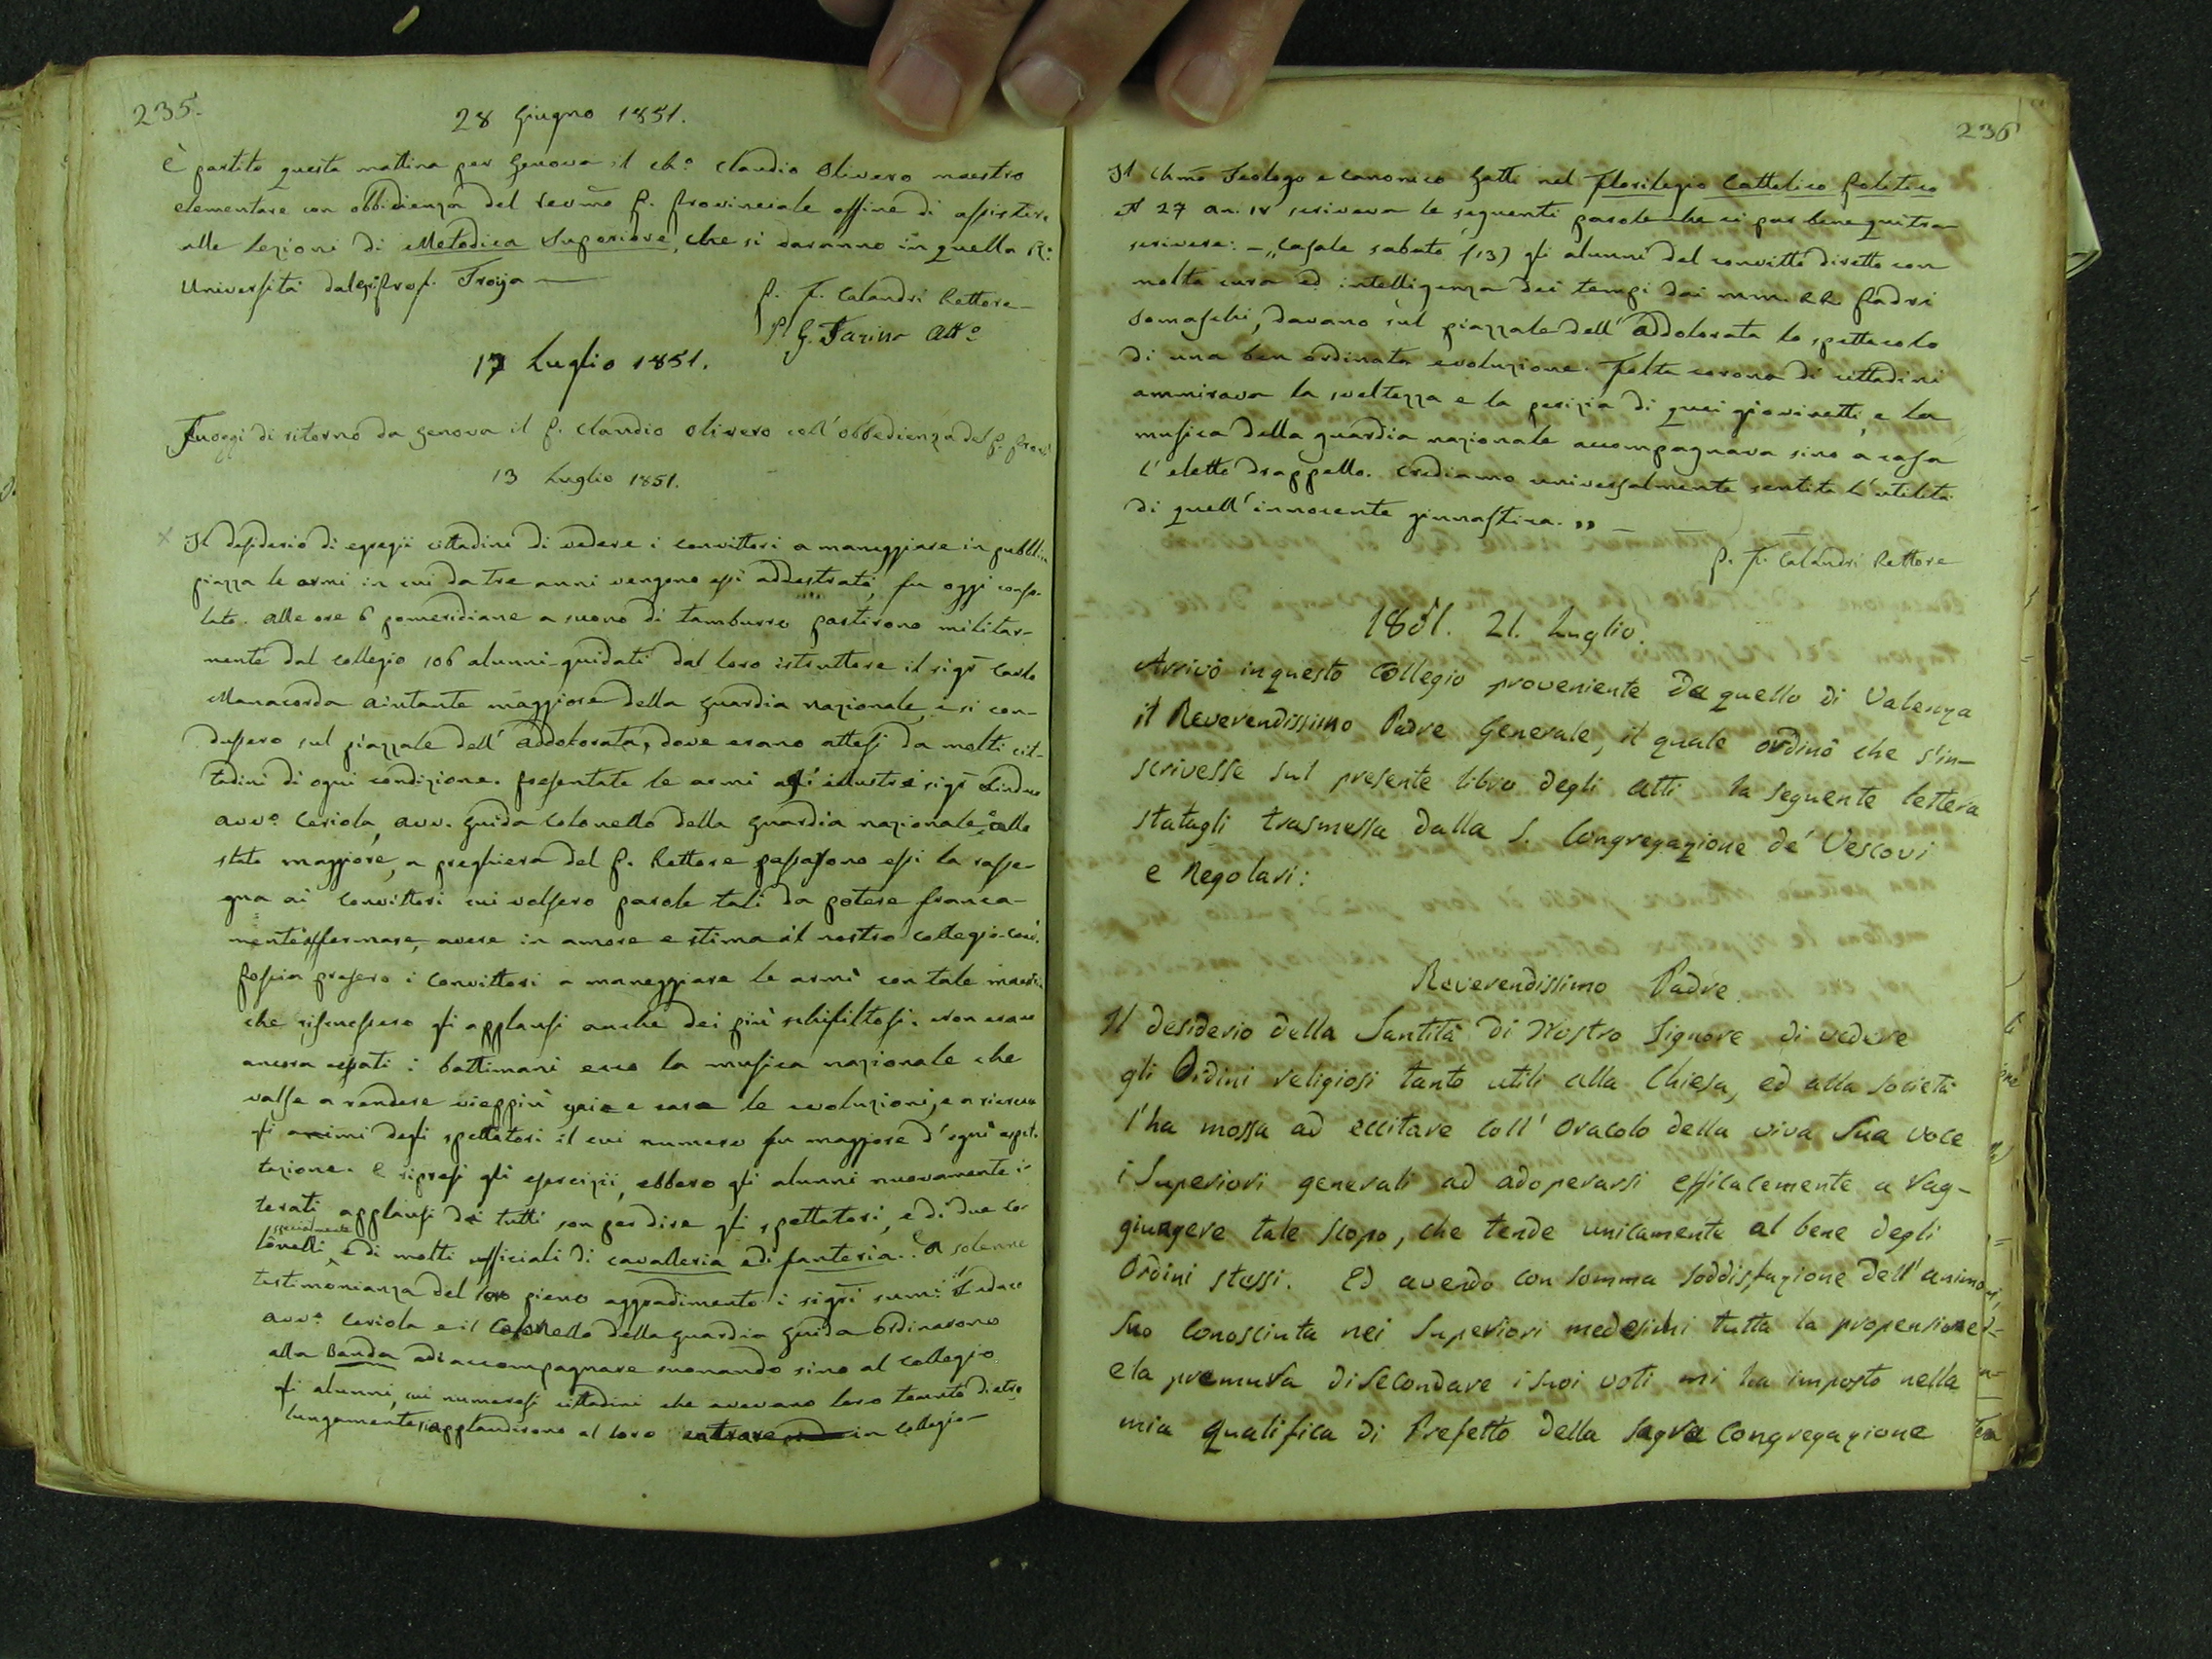 235.
28 Giugno 1851.
È partito questa mattina per Genova il ch.º Claudio Olivero maestro
elementare con obbidienza del revmõ P. Provinciale affine di assistere
alle lezioni di Metodica Superiore, che si daranno in quella R.ª
Università dal Prof. Troya —
P. F. Calandri Rettore —
P. G. Farina Att.º
17 Luglio 1851.
Fu oggi di ritorno da Genova il P. Claudio Olivero coll'obbedienza del P. Prov.
13 Luglio 1851.
Il desiderio di egregii cittadini di vedere i convittori a maneggiare in pubbli..
piazza le armi in cui da tre anni vengono essi addestrati, fu oggi conso-
lato. Alle ore 6 pomeridiane a suono di tamburro partirono militar-
mente dal collegio 106 alunni guidati dal loro istruttore il sigr Carlo
Manacorda aiutante maggiore della guardia nazionale, e si con-
dussero sul piazzale dell'Addolorata, dove erano attesi da molti cit-
tadini di ogni condizione. Presentate le armi agli illustri sigri Sindaco
avv.º Ceriola, avv. Guida Colonello della guardia nazionale, e allo
stato maggiore, a preghiera del P. Rettore passarono essi la rasse-
gna ai Convittori cui volsero parole tali da potere franca-
mente affermare, avere in amore e stima il nostro collegio-con.
Poscia presero i Convittori a maneggiare le armi con tale maest.
che riscuessero gli applausi anche dei più schifiltosi. Non erano
ancora cessati i battimani ecco la musica nazionale che
valse a rendere vieppiù gaie e care le evoluzioni, e a ricreare
gli animi degli spettatori il cui numero fu maggiore d'ogni aspet-
tazione. E ripresi gli esercizii, ebbero gli alunni nuovamente i-
terati applausi da tutti son per dire gli spettatori, e di due co-
lonelli specialmente, e di molti ufficiali di cavalleria e di fanteria. A solenne
testimonianza del loro pieno aggradimento i sigri sumi: il Sindaco
avv.º Ceriola e il Colonello della guardia Guida ordinarono
alla Banda ad accompagnare suonando sino al collegio
gli alunni, cui numerosi cittadini che avevano loro tenuto dietro
lungamente riapplaudirono al loro entrare in collegio —
236
Il chmõ Teologo e canonico Gatti nel Florilegio Cattolico Politico
Nº 27 an. IV scriveva le seguenti parole che ci par bene qui tra-
scrivere: — „Casale sabato (13) gli alunni del convitto diretto con
molta cura ed intelligenza dei tempi dai mm. RR. Padri
Somaschi, davano sul piazzale dell'Addolorata lo spettacolo
di una ben ordinata evoluzione. Folta corona di cittadini
ammirava la sveltezza e la perizia di quei giovinetti, e la
musica della guardia nazionale accompagnava sino a casa
l'eletto drappello. Crediamo universalmente sentita l'utilità
di quell'innocente ginnastica.„ —
P. F. Calandri Rettore
1851. 21. Luglio.
Arrivò in questo Collegio proveniente da quello di Valenza
il Reverendissimo Padre Generale, il quale ordinò che s'in-
scrivesse sul presente libro degli Atti la seguente lettera
statagli trasmessa dalla S. Congregazione de' Vescovi
e Regolari:
Reverendissimo Padre.
Il desiderio della Santità di Nostro Signore di vedere
gli Ordini religiosi tanto utili alla Chiesa, ed alla società
l'ha mossa ad eccitare coll'Oracolo della viva Sua voce
i Superiori generali ad adoperarsi efficacemente a rag-
giungere tale scopo, che tende unicamente al bene degli
Ordini stessi. Ed avendo con somma soddisfazione dell'animo
Suo conosciuta nei Superiori medesimi tutta la propensione
e la premura di secondare i suoi voti mi ha imposto nella
mia qualifica di Prefetto della Sagra Congregazione